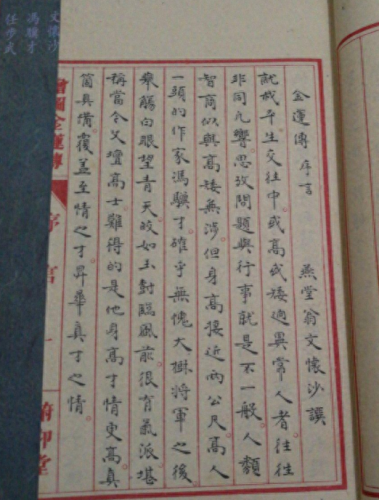 金蓮傳 序言 燕堂翁文懷沙譔
就我平生交往中或高或矮迥異常人者往往
非同凡響思考問題與行事就是不一般人類
智商似與高矮無涉但身高接近兩公尺高人
一頭的作家馮驥才確乎無愧大樹將軍之後
舉觴白眼望青天皎如玉樹臨風前很有氣派堪
稱當今文壇高士難得的是他身高才情更高真
箇具備覆蓋至情之才昇華真才之情
繪圖金蓮傳
序言
一
俯仰堂
文懷沙
馮驥才
任步武